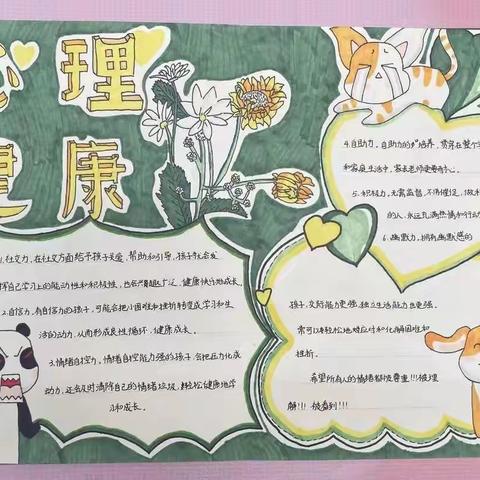 心理
健康
1.社交力，在社交方面给予孩子关爱，帮助和引导，孩子就会发
挥自己学习上的能动性和积极性，也会兴趣广泛，健康快乐地成长。
2.自信力，有自信力的孩子，可能会把小困难和挫折转变成学习和生
活的动力，从而形成良性循环，健康成长。
3.情绪自控力。情绪自控能力强的孩子，会把压力化成
动力，还会及时清除自己的情绪垃圾，轻松健康地学
习和成长。
4.自助力，自助力的培养，常存在整个
和家庭生活中，家长老师要有心。
5.积极力，无需监督，不用催促，做
的人，永远充满热情和行动
6.幽默力，拥有幽默感的
孩子，交际能力更强，独立生活能力也更强。
常可以轻松地对应对和化解困难和
挫折。
希望所有人的情绪都被尊重!!!被理
解!!! 被看到!!!